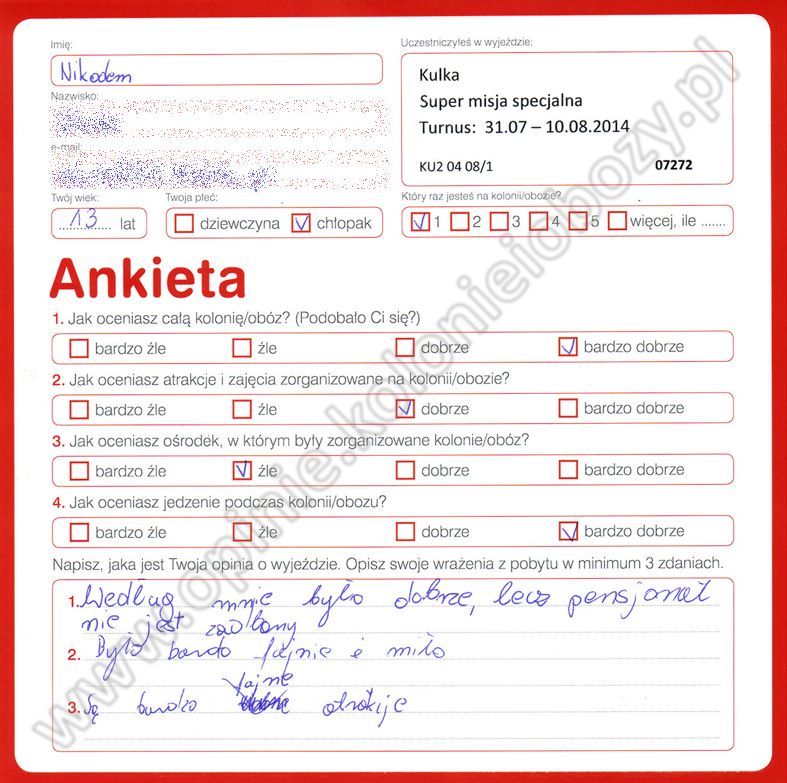 Imię:
Nikodem
Nazwisko:
e-mail:
Twój wiek:
13 lat
Twoja płeć:
dziewczyna chłopak
Uczestniczyłeś w wyjeździe:
Kulka
Super misja specjalna
Turnus: 31.07 – 10.08.2014
KU2 04 08/1 07272
Który raz jesteś na kolonii/obozie?
1 2 3 4 5 więcej, ile .......
Ankieta
1. Jak oceniasz całą kolonię/obóz? (Podobało Ci się?)
bardzo źle źle dobrze bardzo dobrze
2. Jak oceniasz atrakcje i zajęcia zorganizowane na kolonii/obozie?
bardzo źle źle dobrze bardzo dobrze
3. Jak oceniasz ośrodek, w którym były zorganizowane kolonie/obóz?
bardzo źle źle dobrze bardzo dobrze
4. Jak oceniasz jedzenie podczas kolonii/obozu?
bardzo źle źle dobrze bardzo dobrze
Napisz, jaka jest Twoja opinia o wyjeździe. Opisz swoje wrażenia z pobytu w minimum 3 zdaniach.
1. Według mnie było dobrze, lecz pensjonat
nie jest zadbany
2. Było bardo fajnie i miło
fajne
3. Są bardzo atrakcje
www.opinie.kolonieiobozy.pl